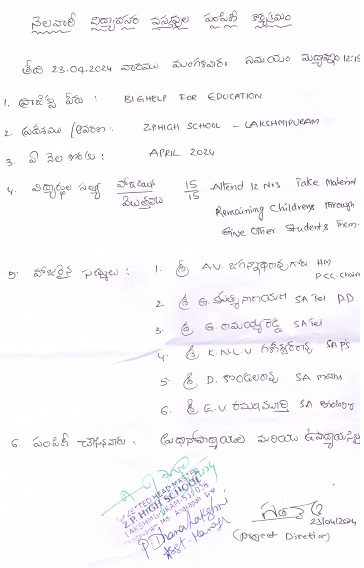 నెలవారీ విద్యావస్తు వస్తువుల పంపిణీ కార్యక్రమం
తేది 23.04.2024 వారము మంగళవారం సమయం మధ్యాహ్నం 12:15
1. ప్రాజెక్టు పేరు : BIGHELP FOR EDUCATION
2. ప్రదేశము / ఆవరణ : Z.P HIGH SCHOOL - LAKSHMIPURAM
3. ఏ నెల కొరకు : APRIL 2024
4. విద్యార్థుల సంఖ్య హాజరు / మొత్తము 15/15 Attend 12 No's Take Material
Remaining Childrens Through
Give Other Students Them.
5. హాజరైన సభ్యులు : 1. శ్రీ A.V. జగన్నాధరావు గారు HM
2. శ్రీ G. సత్యనారాయణ SA Tel P.D
3. శ్రీ G. రామయ్యరెడ్డి SA Tel
4. శ్రీ K.N.L.V గణేశ్వరరావు SA PS
5. శ్రీ D. కొండలరావు SA maths
6. శ్రీ E.V రామమూర్తి SA Biology
6. పంపిణీ చేసినవారు : ప్రధానోపాధ్యాయులు మరియు ఉపాధ్యాయులు
GAZETTED HEAD MASTER
Z.P. HIGH SCHOOL
LAKSHMIPURAM
P. Dhanalakshmi
Asst. Manager
23/04/2024
(Project Director)